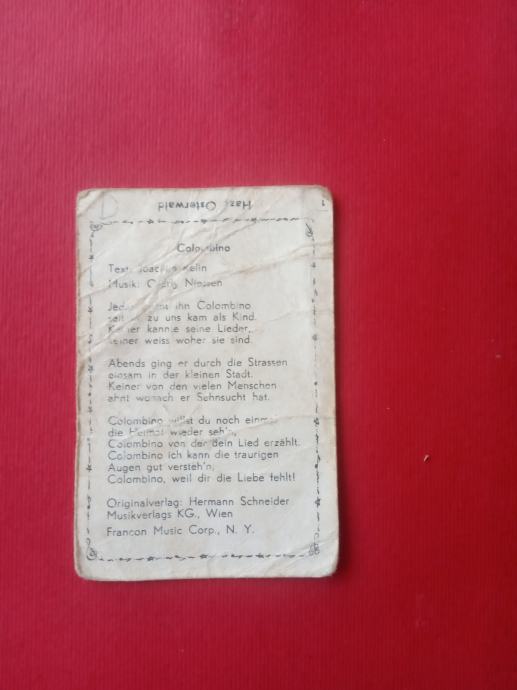 Hazy Osterwald
1
Colombino
Text: Joachim Relin
Musik: Georg Niessen
Jeder nennt ihn Colombino
seit er zu uns kam als Kind.
Keiner kannte seine Lieder,
keiner weiss woher sie sind.
Abends ging er durch die Strassen
einsam in der kleinen Stadt.
Keiner von den vielen Menschen
ahnt wonach er Sehnsucht hat.
Colombino willst du noch einmal
die Heimat wieder seh'n,
Colombino von der dein Lied erzählt.
Colombino ich kann die traurigen
Augen gut versteh'n,
Colombino, weil dir die Liebe fehlt!
Originalverlag: Hermann Schneider
Musikverlags KG., Wien
Francon Music Corp., N. Y.